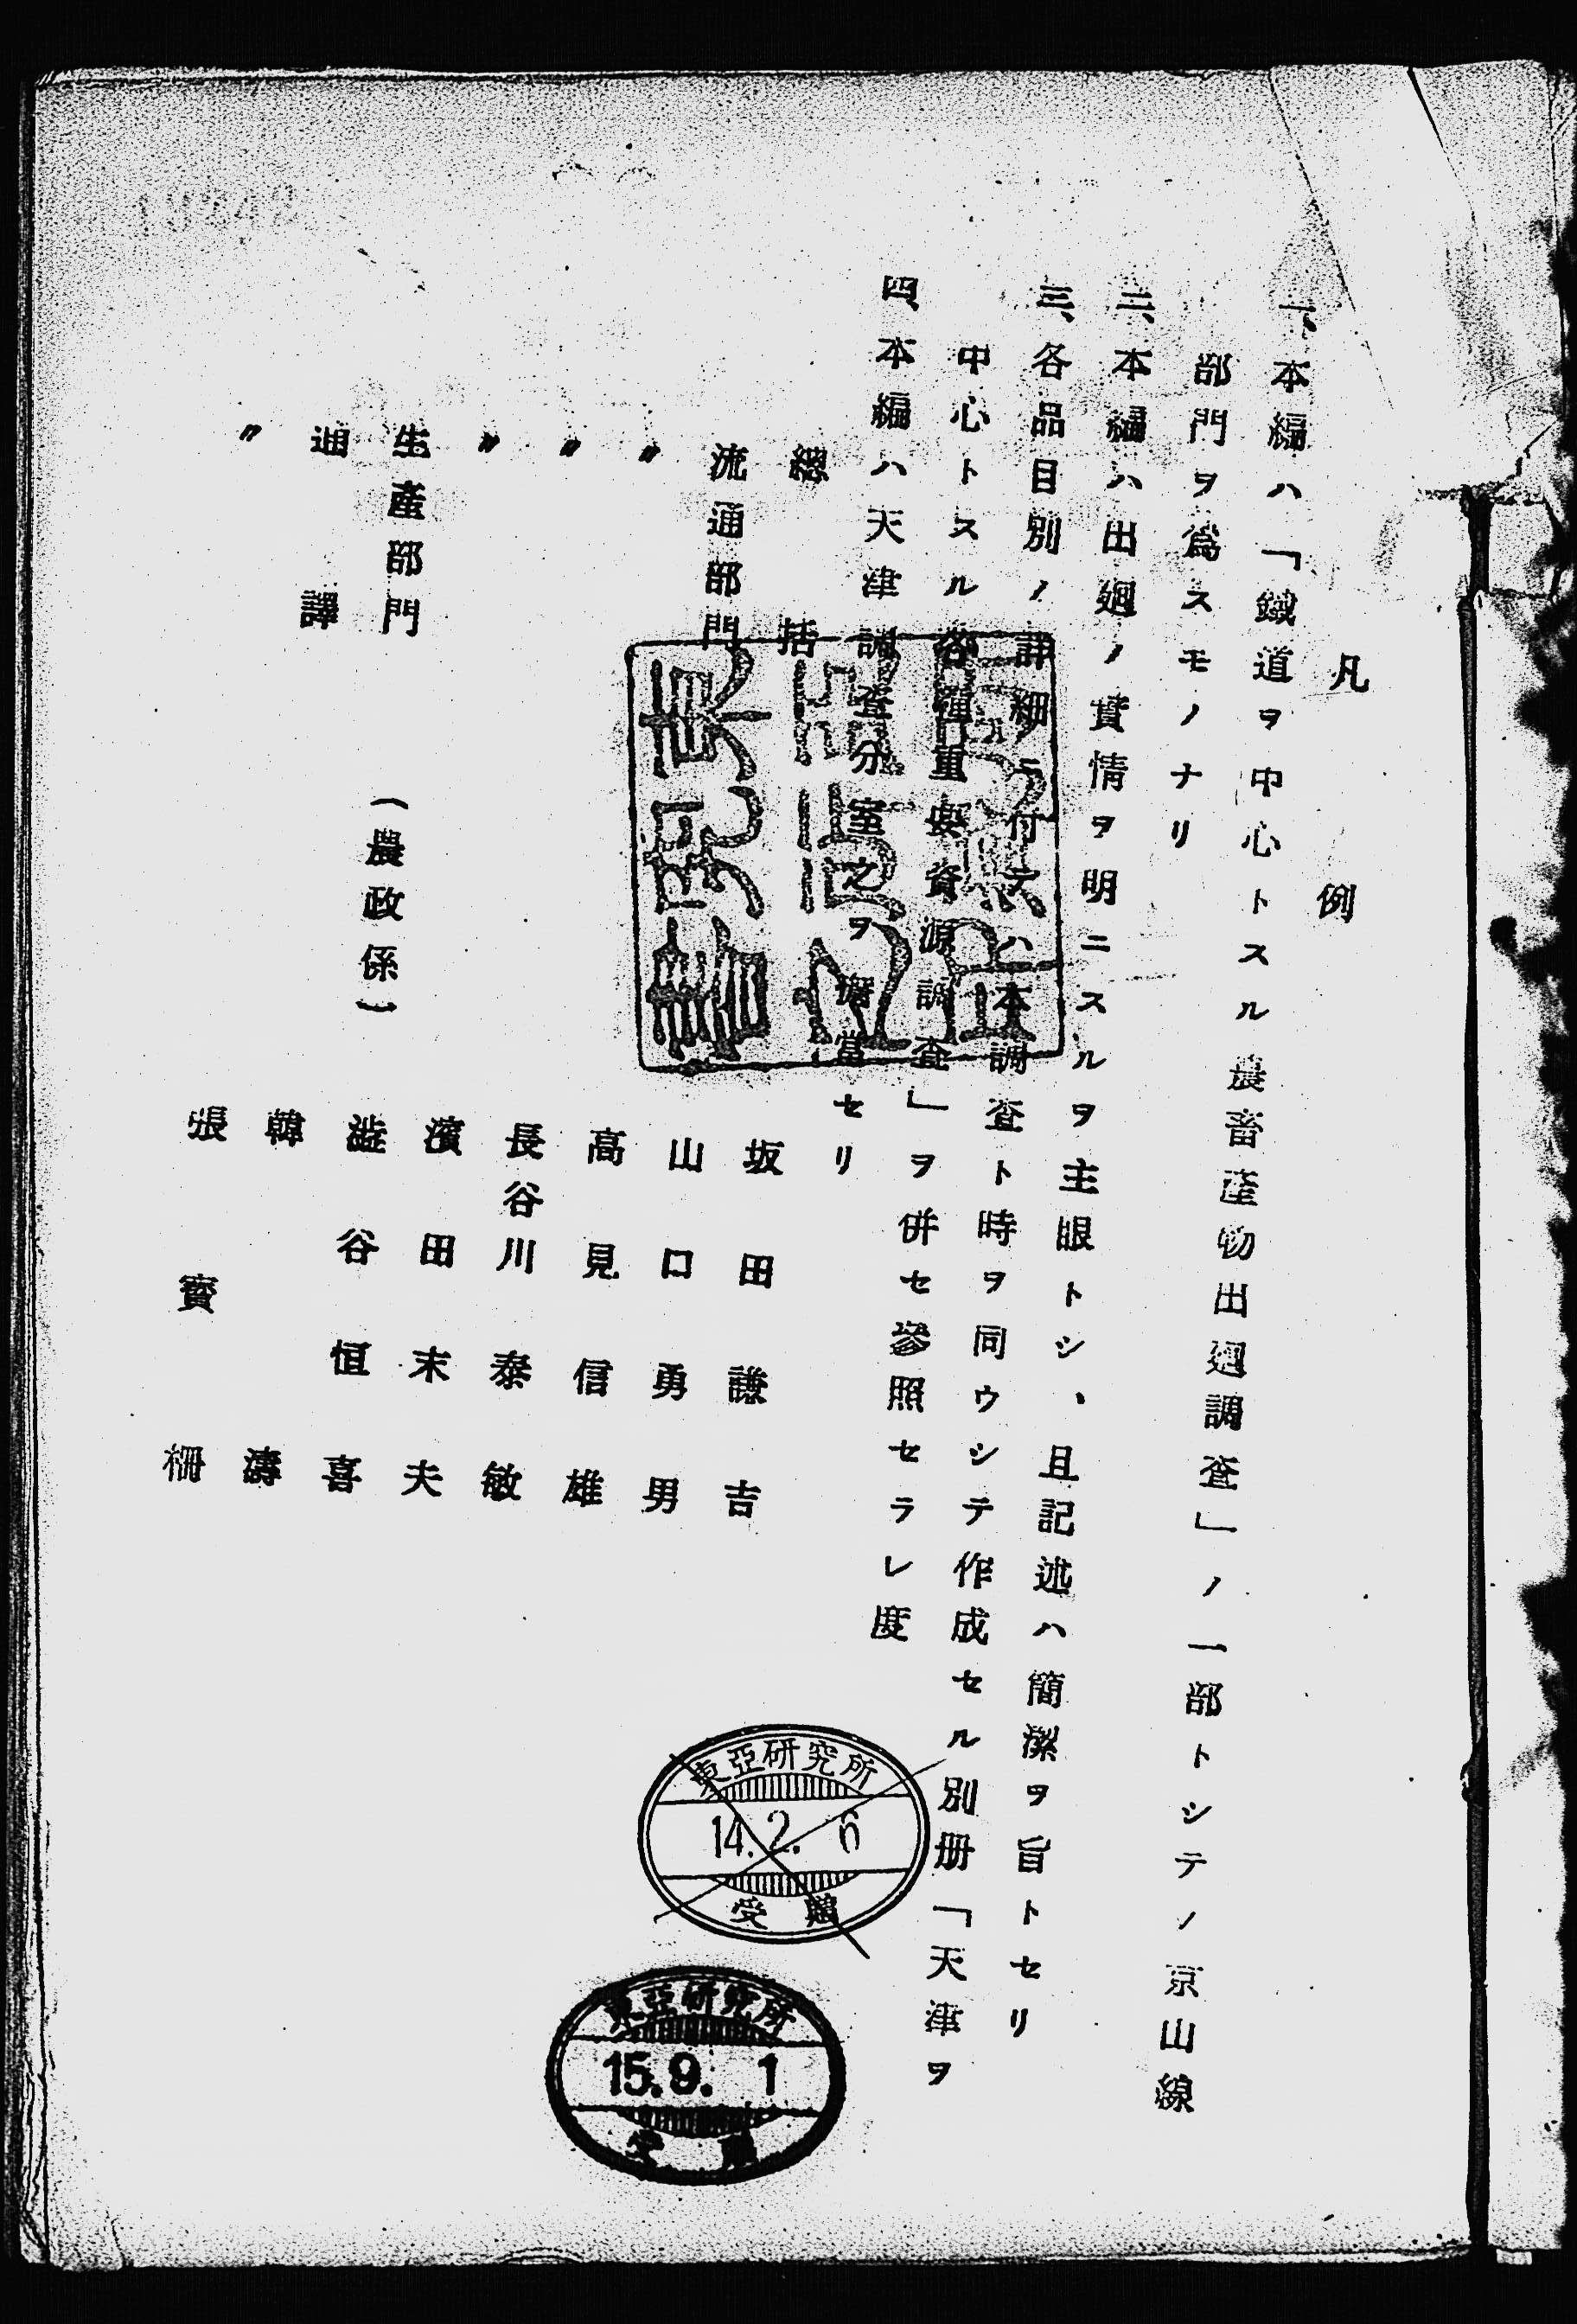 凡例
一、本編ハ「鐵道ヲ中心トスル農畜産物出廻調査」ノ一部トシテノ京山線
部門ヲ爲スモノナリ
二、本編ハ出廻ノ實情ヲ明ニスルヲ主眼トシ、且記述ハ簡潔ヲ旨トセリ
三、各品目別ノ詳細ニ付テハ本調査ト時ヲ同ウシテ作成セル別册「天津ヲ
中心トスル各種重要資源調査」ヲ併セ參照セラレ度
四、本編ハ天津調査分室之ヲ擔當セリ
總括 坂田謙吉
流通部門 山口勇男
〃 高見信雄
〃 長谷川泰敏
〃 濱田末夫
生產部門 (農政係) 澁谷恒喜
通譯 韓濤
〃 張寶柵
東亞研究所
14.2.6
受贈
東亞研究所
15.9.1
受